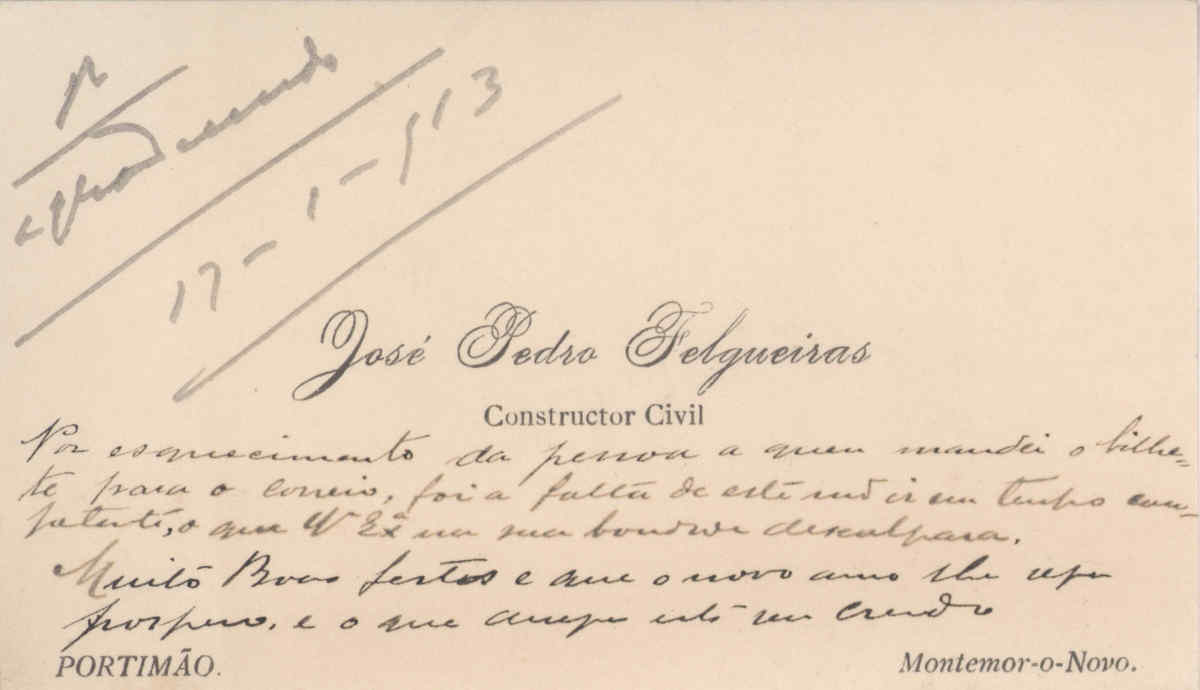 R
agradecendo
17-1-913
José Pedro Felgueiras
Constructor Civil
Por esquecimento da pessoa a quem mandei o bilhe-
te para o correio, foi a falta de este não ir em tempo com-
petente, o que Vª Exª na sua bondade desculpara.
Muito Boas festas e que o novo anno lhe seja
prospero, e o que deseja este seu creado
PORTIMÃO.
Montemor-o-Novo.